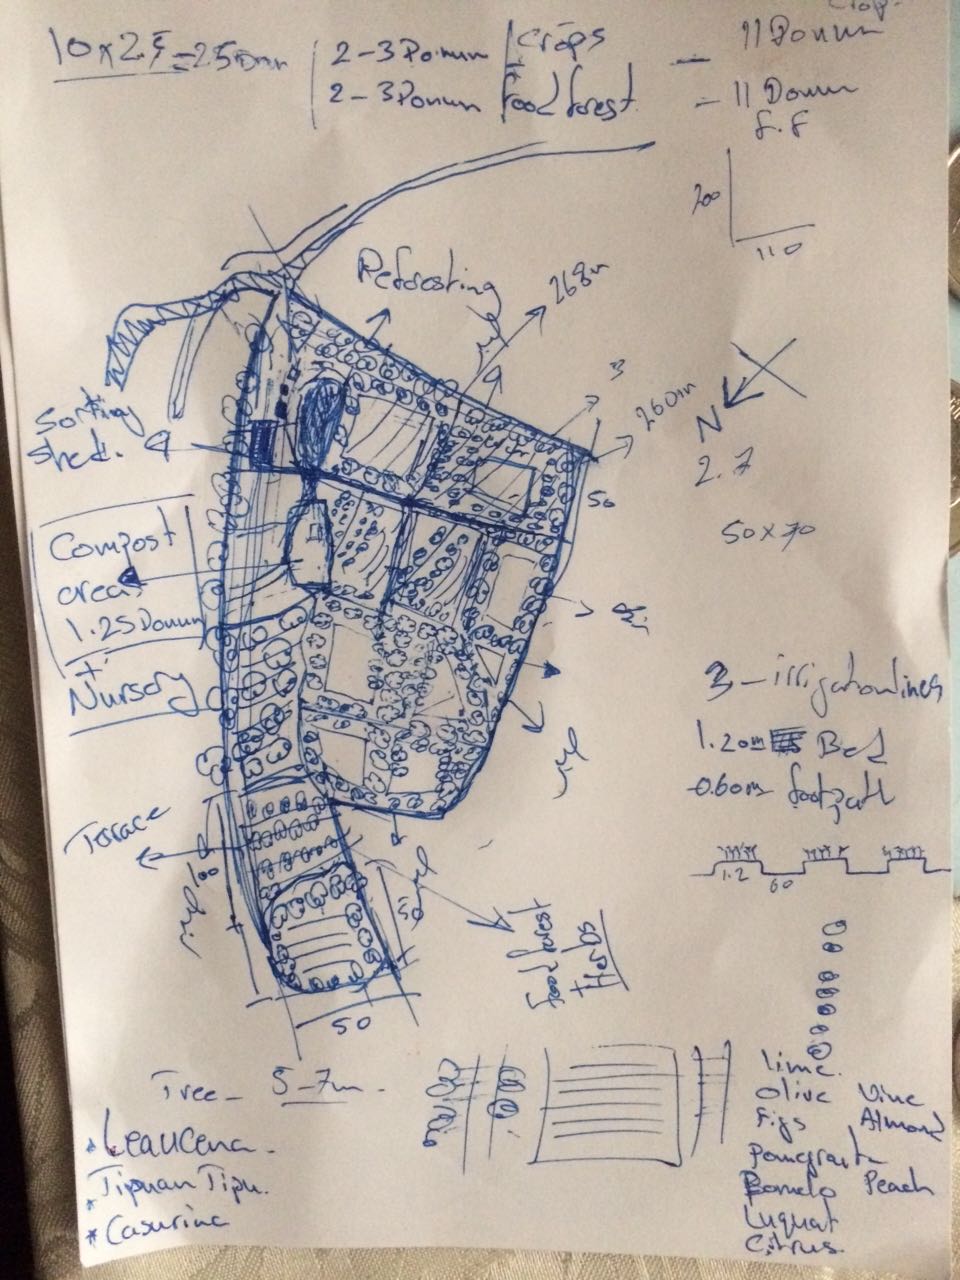 Crop.
10 x 2.5 = 25 Donm
2-3 Donum
Crops
+
- 11 Donum
2-3 Donum
food forest
- 11 Donum
F.F
200
110
Reforesting
268m
3
260m
N
2.7
50
50 x 70
Sorting
shed.
Compost
area
1.25 Donum
+
Nursery
3 - irrigation lines
1.20m Bed
0.60m footpath
1.2
60
Terrace
80
50
50
food forest
Herbs
Tree - 5-7m.
* Leaucena.
* Tipuan Tipu.
* Casurina
lime.
Olive Vine
Figs Almond
Pomegranta
Bomelo Peach
Luquat
Citrus.